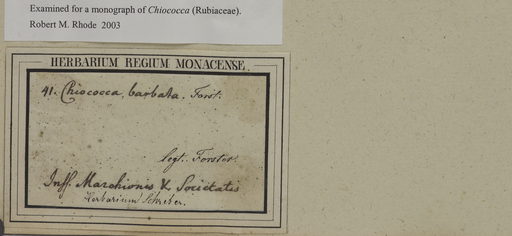 Examined for a monograph of Chiococca (Rubiaceae).
Robert M. Rhode 2003
HERBARIUM REGIUM MONACENSE.
41. Chiococca barbata. Forst.
legt. Forster.
Inss. Marchionis & Societatis
Herbarium Schreber.